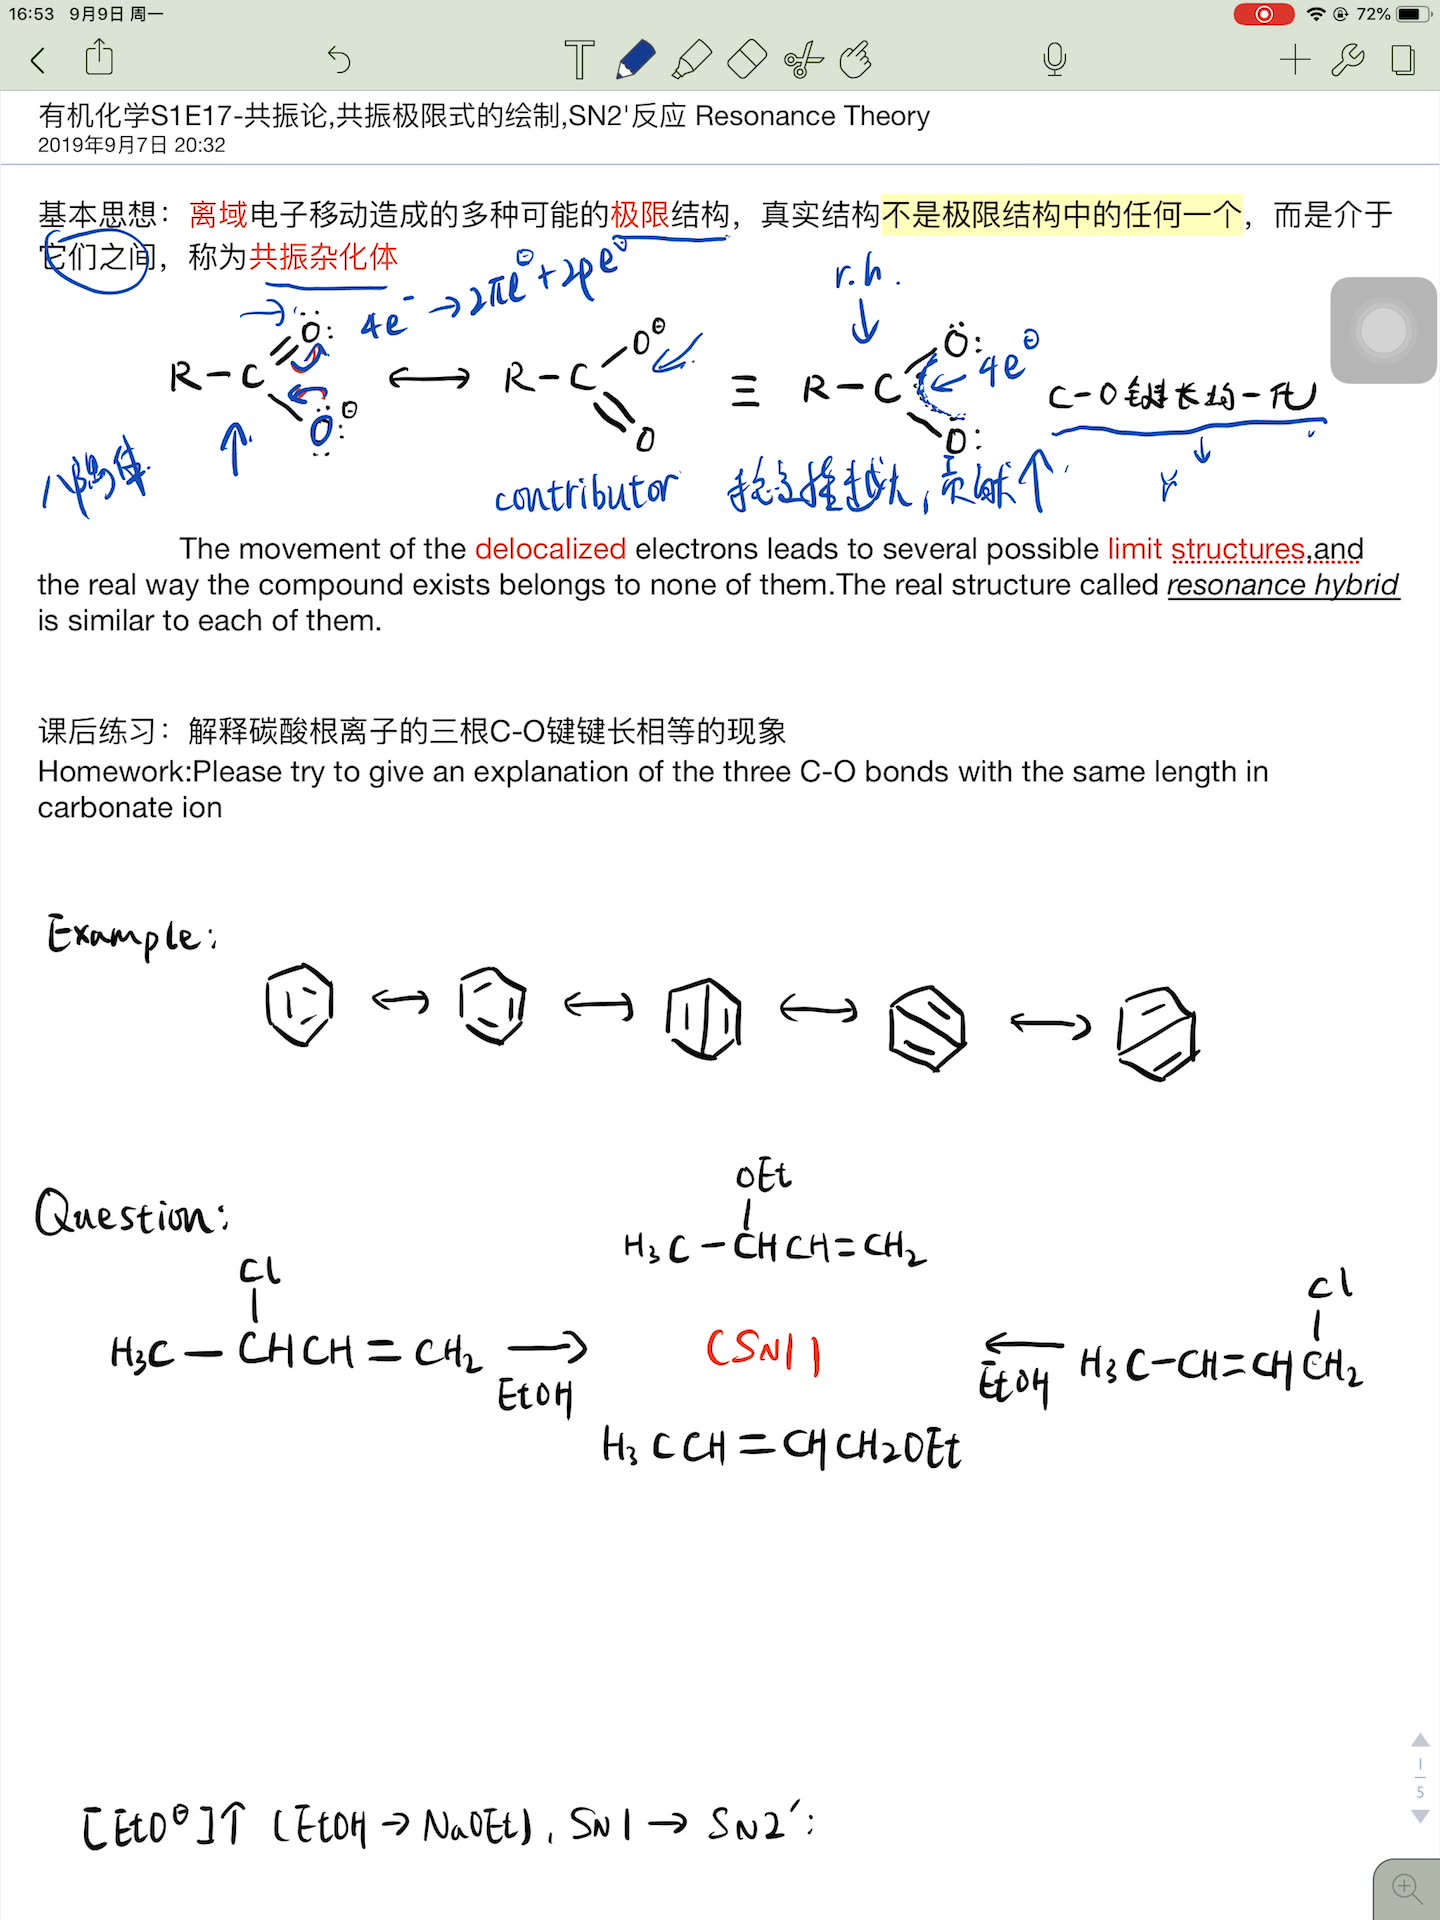 16:53 9月9日 周一 72%
有机化学S1E17-共振论,共振极限式的绘制,SN2'反应 Resonance Theory
2019年9月7日 20:32
基本思想：离域电子移动造成的多种可能的极限结构，真实结构不是极限结构中的任何一个，而是介于
它们之间，称为共振杂化体
4e⁻ → 2πe⊖ + 2pe⊖
r.h.
R-C O: O:⊖ ↔ R-C O⊖ O ≡ R-C O: O: 4e⊖ C-O键长均一化
八隅体
contributor 稳定性越大，贡献↑
The movement of the delocalized electrons leads to several possible limit structures,and
the real way the compound exists belongs to none of them.The real structure called resonance hybrid
is similar to each of them.
课后练习：解释碳酸根离子的三根C-O键键长相等的现象
Homework:Please try to give an explanation of the three C-O bonds with the same length in
carbonate ion
Example:
Question:
OEt
H₃C-CHCH=CH₂
Cl
H₃C-CHCH=CH₂ → EtOH
(SN1)
Cl
← EtOH H₃C-CH=CHCH₂
H₃CCH=CHCH₂OEt
[EtO⊖]↑ (EtOH→NaOEt), SN1 → SN2′:
1
5